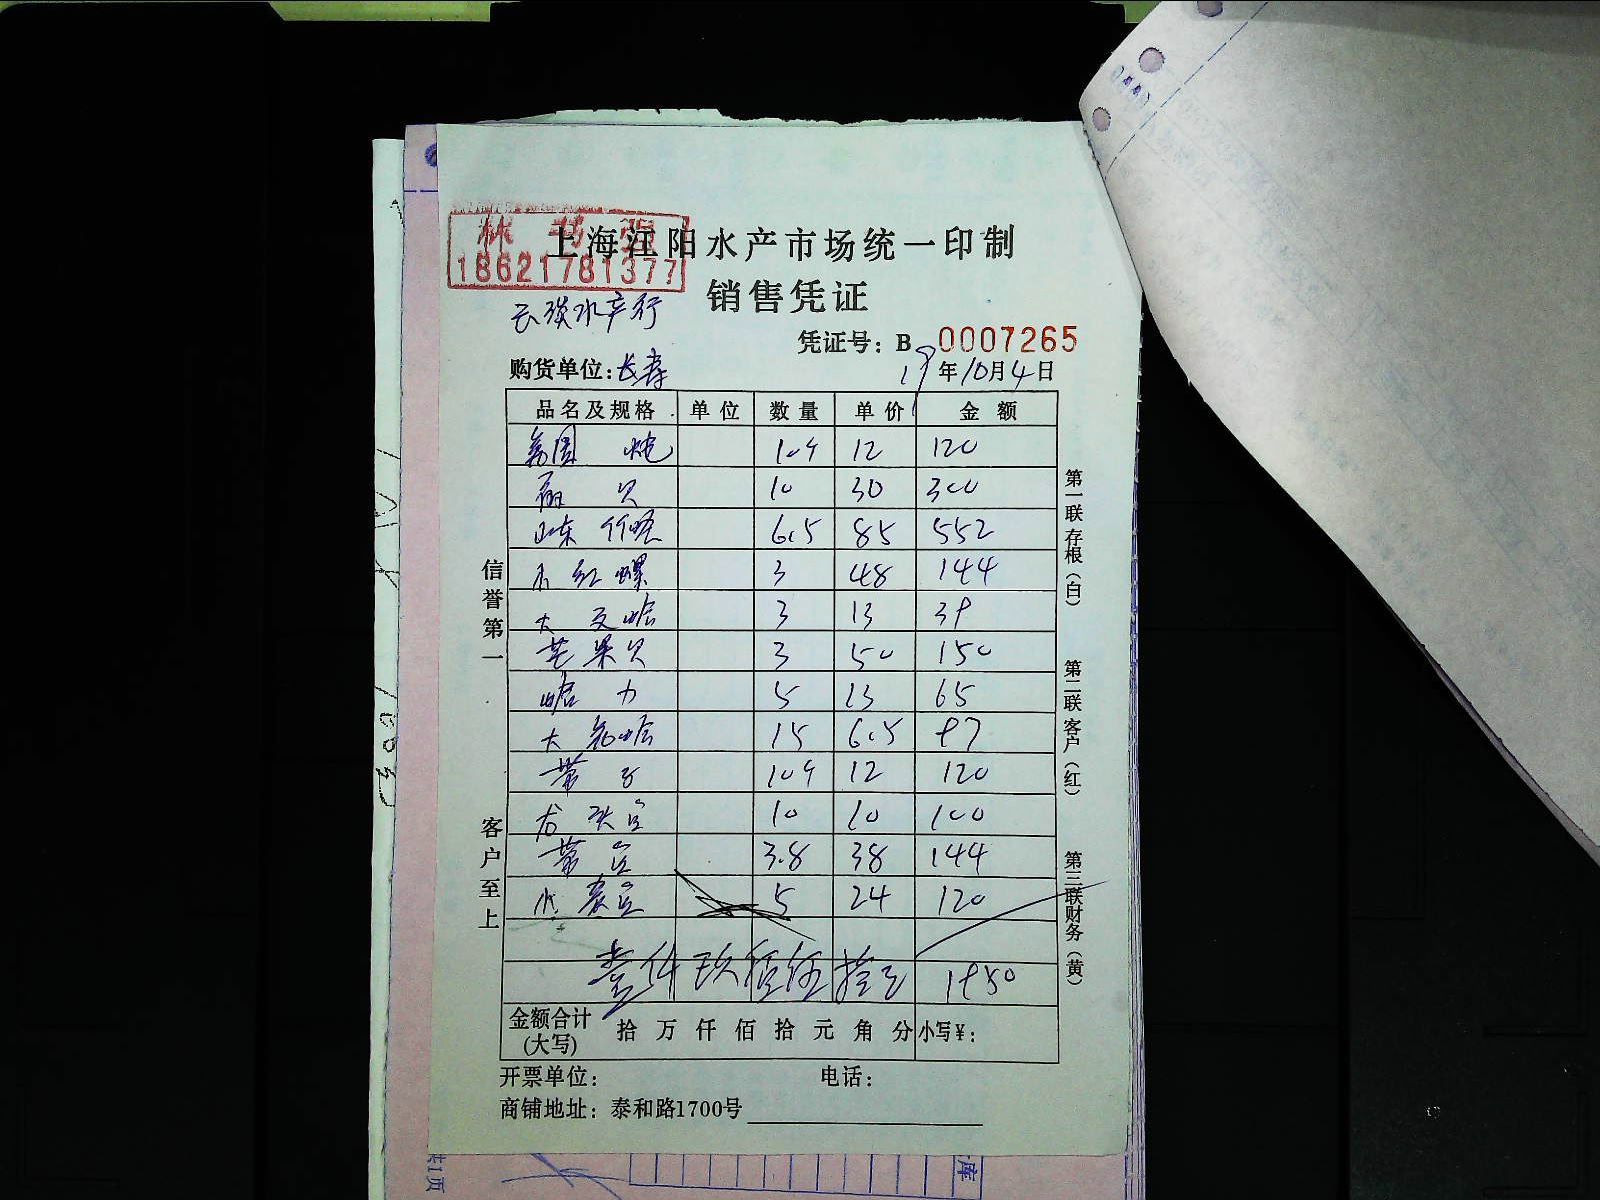 18621781377
上海江阳水产市场统一印制
销售凭证
水产行
凭证号：B 0007265
购货单位：长寿 19年10月4日
品名及规格 单位 数量 单价 金额
12 120
贝 10 30 300
山东 6.5 85 552
小红螺 3 48 144
大文蛤 3 13 39
芒果贝 3 50 150
蛤力 5 13 65
大 蛤 15 6.5 97
带子 12 120
龙头 10 10 100
带 3.8 38 144
5 24 120
壹仟玖佰伍拾元 1950
金额合计(大写) 拾万仟佰拾元角分 小写¥：
开票单位： 电话：
商铺地址：泰和路1700号
信誉第一
客户至上
第一联存根（白）
第二联客户（红）
第三联财务（黄）